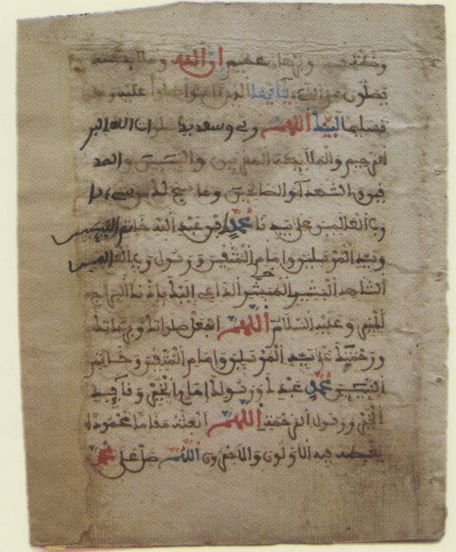 إن الله وملائكته
يصلون على النبي يأيها الذين ءامنوا صلوا عليه وسلموا
تسليما لبيك اللهم ربي وسعديك صلوات الله البر
الرحيم والملائكة المقربين والنبيين والصد
يقين والشهداء والصالحين وما سبح لك من شيء يا
رب العالمين على سيدنا محمد بن عبد الله خاتم النبيين
وسيد المرسلين وإمام المتقين ورسول رب العالمين
الشاهد البشير الداعي إليك بإذنك السراج
المنير وعليه السلام اللهم اجعل صلواتك وبركاتك
ورحمتك على سيد المرسلين وإمام المتقين وخاتم
النبيين محمد عبدك ورسولك إمام الخير وقائد
الخير ورسول الرحمة اللهم ابعثه مقاما محمودا
يغبطه فيه الأولون والآخرون اللهم صل على محمد